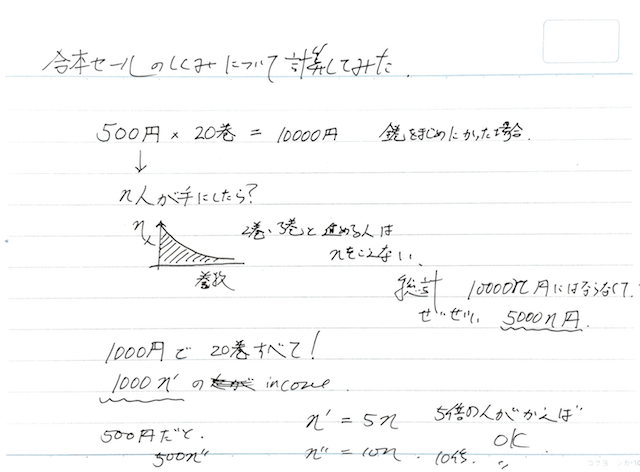 合本セールのしくみについて計算してみた.
500円 × 20巻 = 10000円 まじめにかった場合.
↓
n人が手にしたら?
n
2巻、3巻と進める人は
nをこえない.
巻数
総計 10000n円にはならなくて.
せいぜい 5000n円.
1000円で 20巻すべて!
1000n' の income.
n' = 5n 5倍の人がかえば OK
500円だと.
500n"
n" = 10n. 10倍. 〃